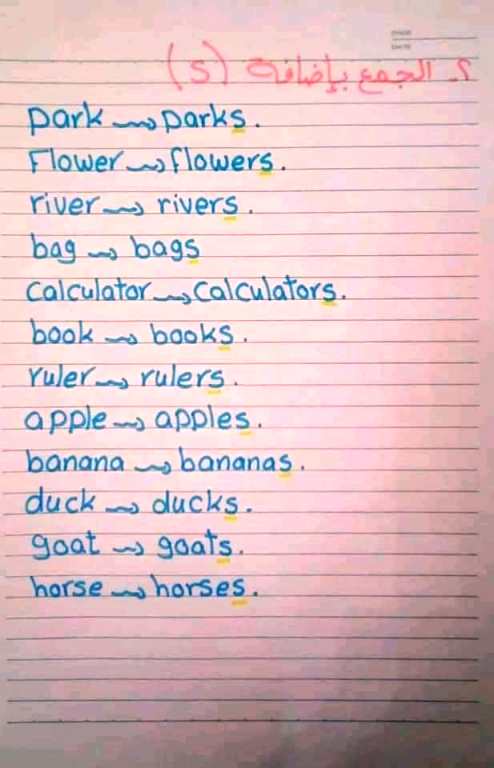 ٢. الجمع بإضافة (s)
park → parks.
Flower → flowers.
river → rivers.
bag → bags
Calculator → Calculators.
book → books.
ruler → rulers.
apple → apples.
banana → bananas.
duck → ducks.
goat → goats.
horse → horses.